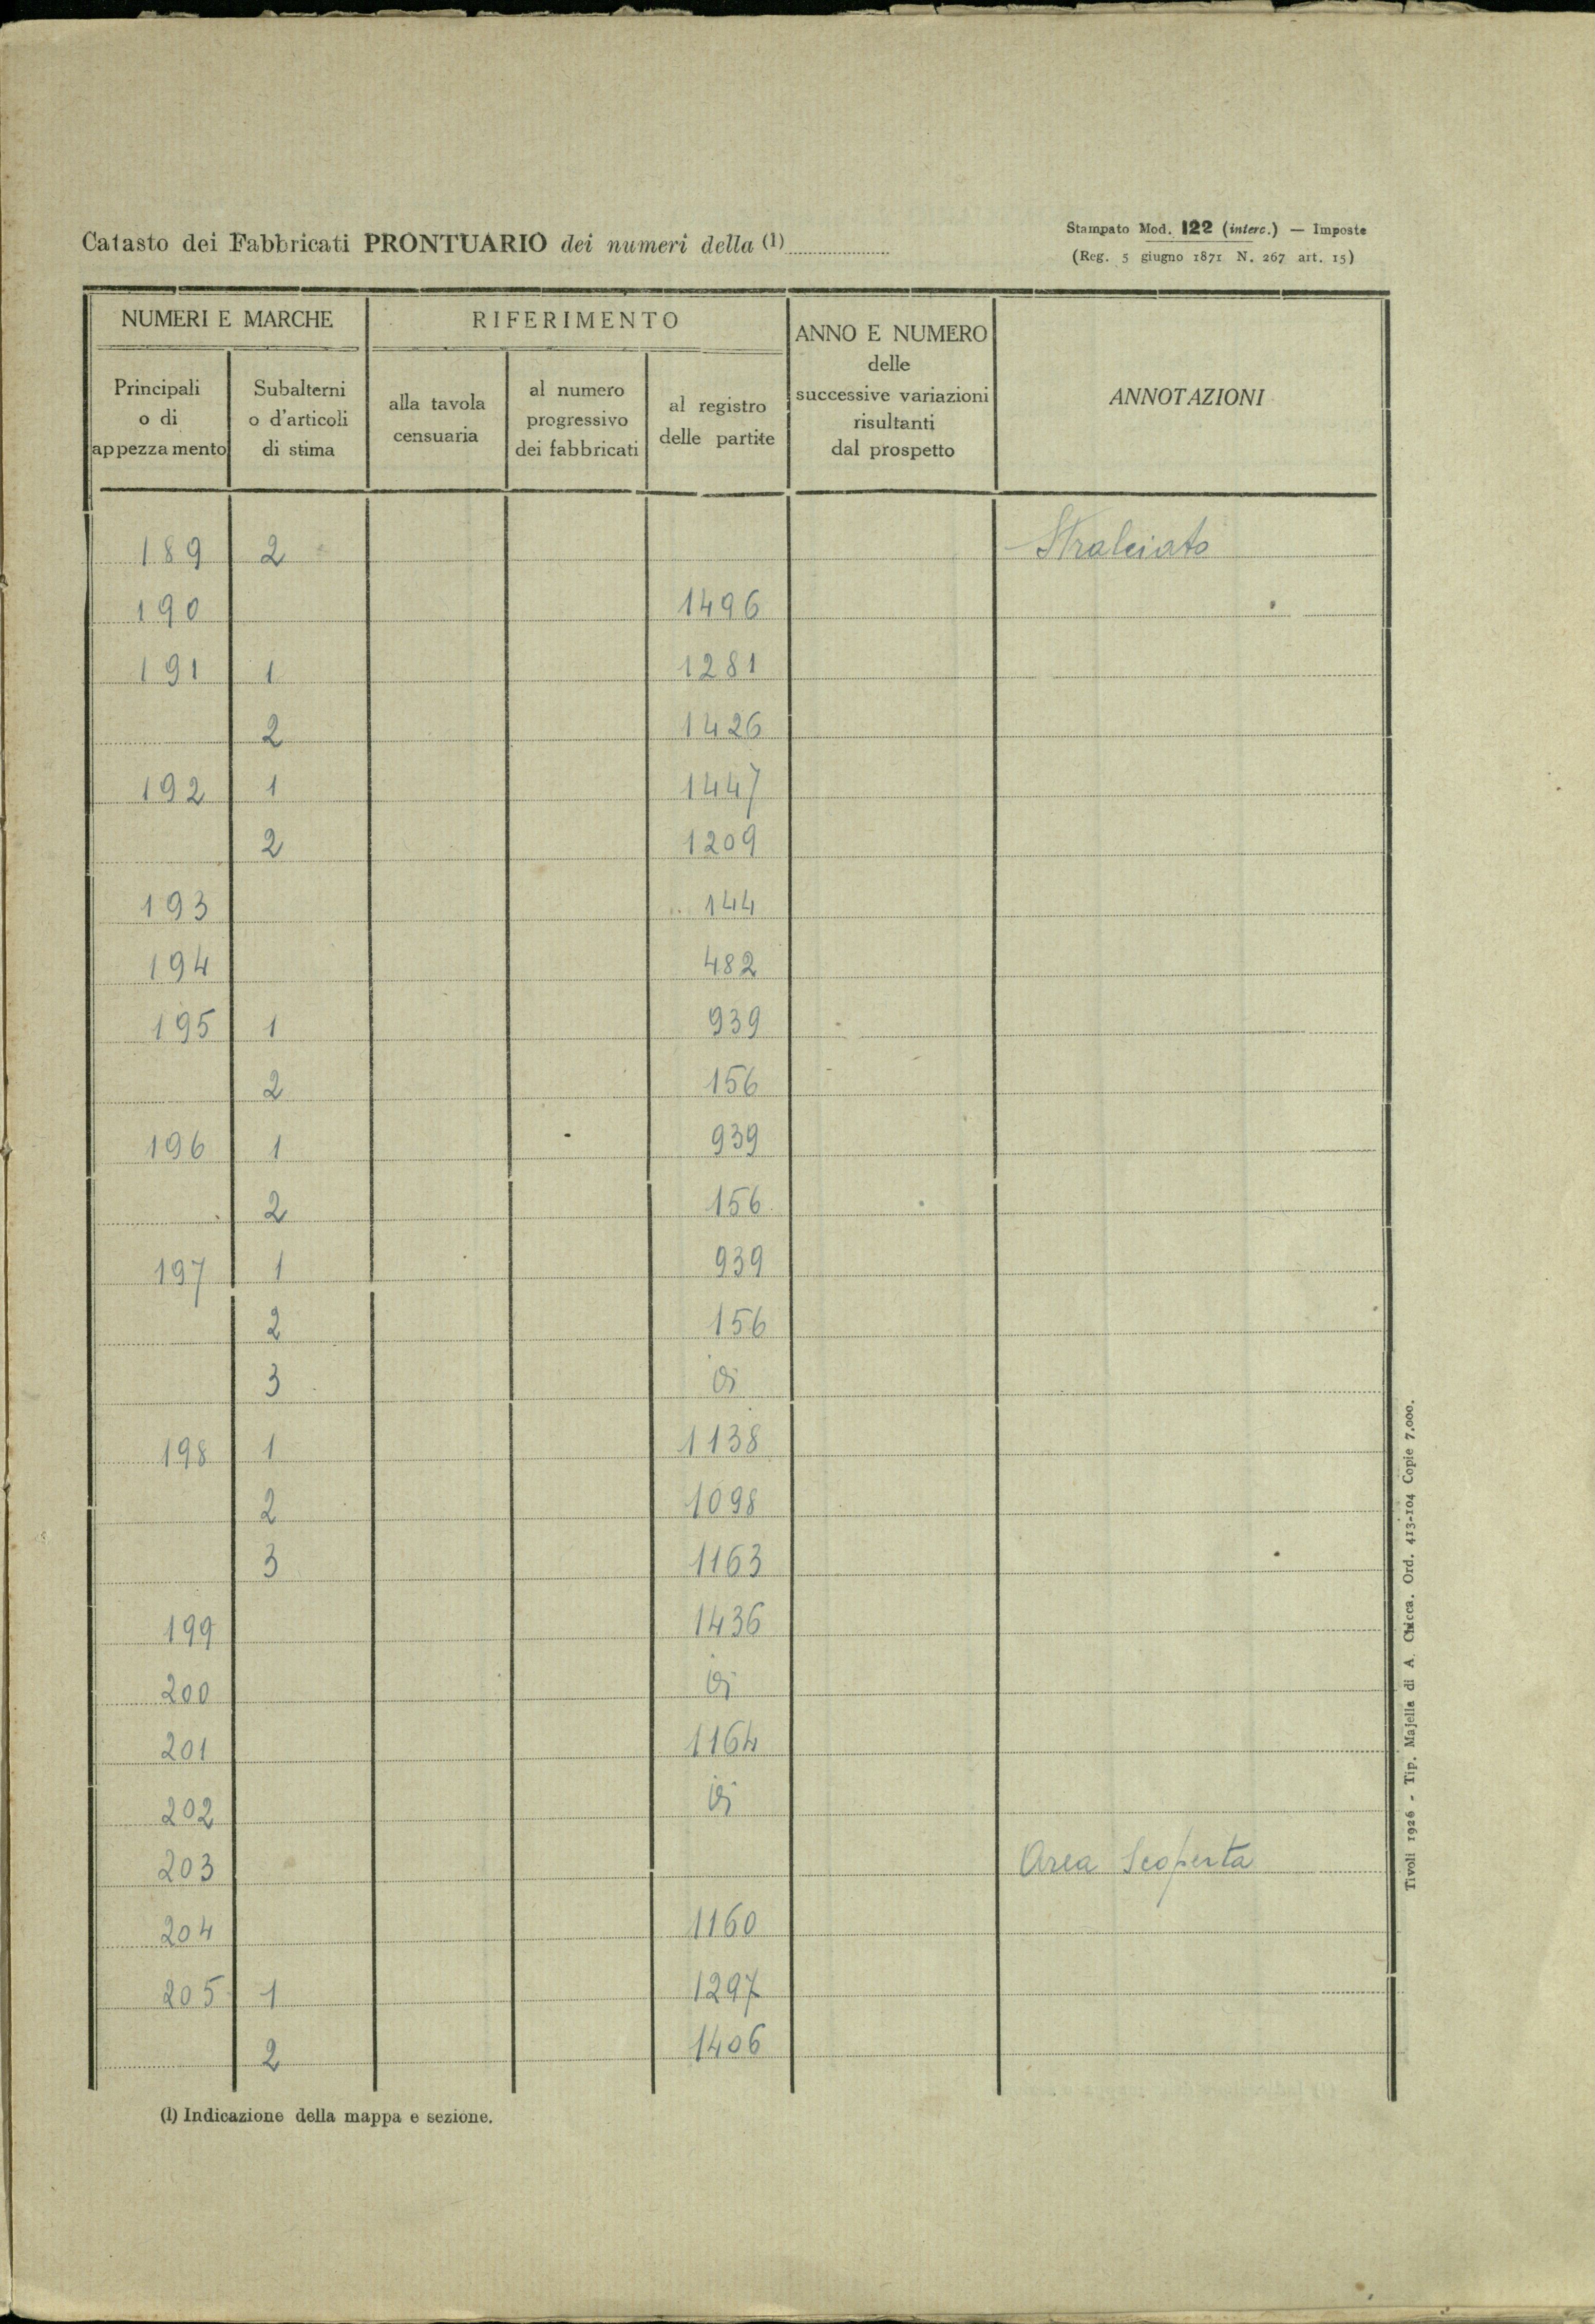 Catasto dei Fabbricati PRONTUARIO dei numeri della (1)
Stampato Mod. 122 (interc.) — Imposte
(Reg. 5 giugno 1871 N. 267 art. 15)
NUMERI E MARCHE
RIFERIMENTO
ANNO E NUMERO
delle
successive variazioni
risultanti
dal prospetto
ANNOTAZIONI
Principali
o di
appezzamento
Subalterni
o d'articoli
di stima
alla tavola
censuaria
al numero
progressivo
dei fabbricati
al registro
delle partite
189 2 Stralciato
190 1496
191 1 1281
2 1426
192 1 1447
2 1209
193 144
194 482
195 1 939
2 156
196 1 939
2 156
197 1 939
2 156
3
198 1 1138
2 1098
3 1163
199 1436
200
201 1164
202
203 Area Scoperta
204 1160
205 1 1297
2 1406
(1) Indicazione della mappa e sezione.
Tivoli 1926 - Tip. Majella di A. Chicca. Ord. 413-104 Copie 7.000.